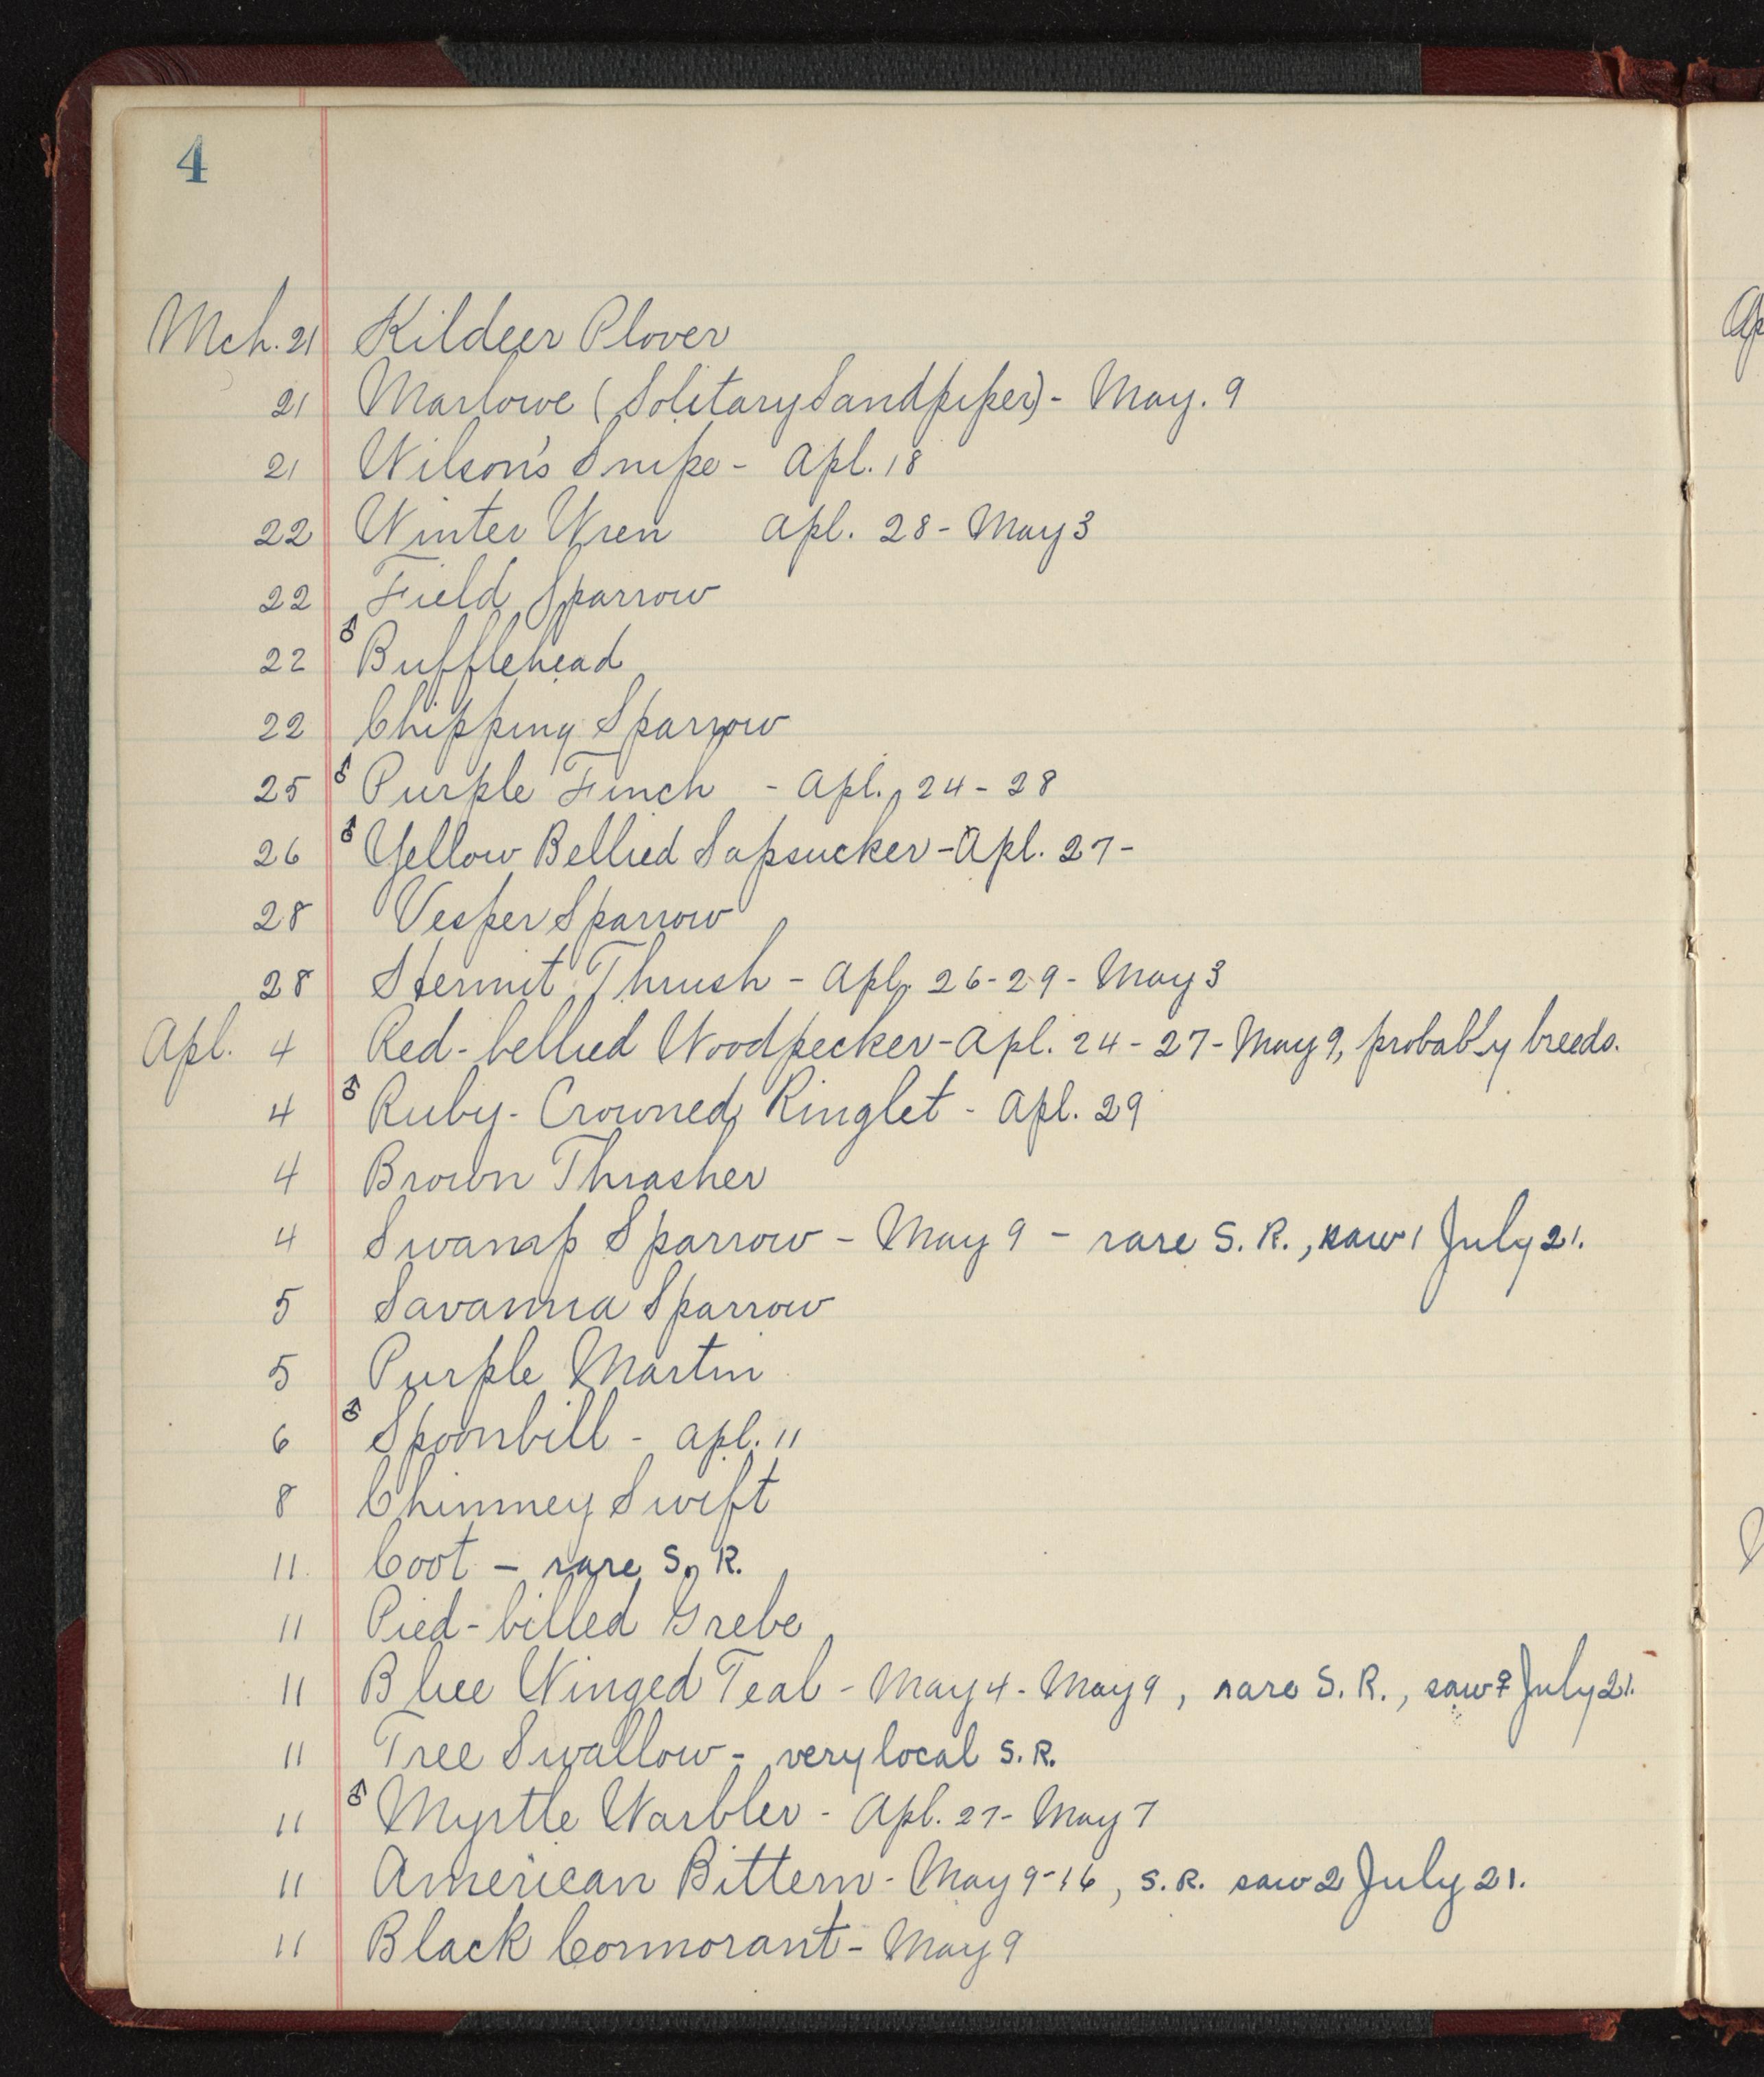 4
Mch. 21 Kildeer Plover
21 Marlowe (Solitary Sandpiper) - May. 9
21 Wilson's Snipe - Apl. 18
22 Winter Wren Apl. 28 - May 3
22 Field Sparrow
22 ♂ Bufflehead
22 Chipping Sparrow
25 ♂ Purple Finch - Apl. 24 - 28
26 ♂ Yellow Bellied Sapsucker - Apl. 27 -
28 Vesper Sparrow
28 Hermit Thrush - Apl. 26 - 29 - May 3
Apl. 4 Red-bellied Woodpecker - Apl. 24 - 27 - May 9, probably breeds.
4 ♂ Ruby-Crowned Kinglet - Apl. 29
4 Brown Thrasher
4 Swamp Sparrow - May 9 - rare S. R., saw 1 July 21.
5 Savanna Sparrow
5 Purple Martin
6 ♂ Spoonbill - Apl. 11
8 Chimney Swift
11. Coot - rare S. R.
11 Pied-billed Grebe
11 Blue Winged Teal - May 4 - May 9, rare S. R., saw ♀ July 21.
11 Tree Swallow - very local S. R.
11 ♂ Myrtle Warbler - Apl. 27 - May 7
11 American Bittern - May 9-16, S. R. saw 2 July 21.
11 Black Cormorant - May 9